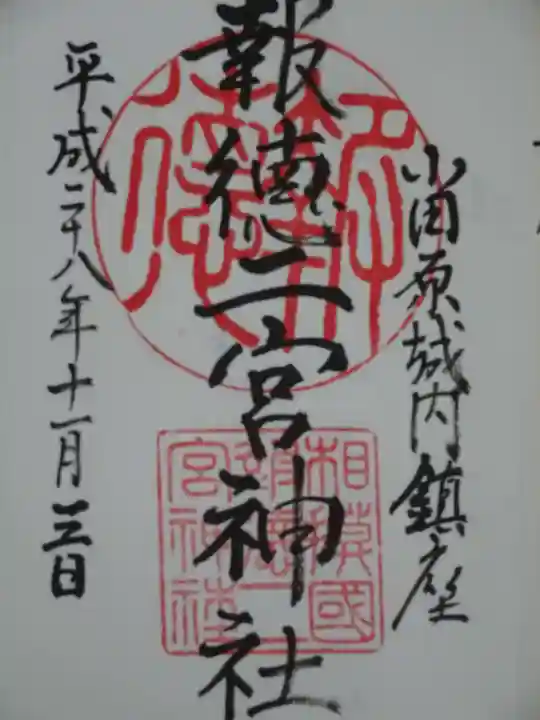 小田原城内鎮座
報徳二宮神社
平成二十八年十一月三日
報徳
相模國
報徳二
宮神社